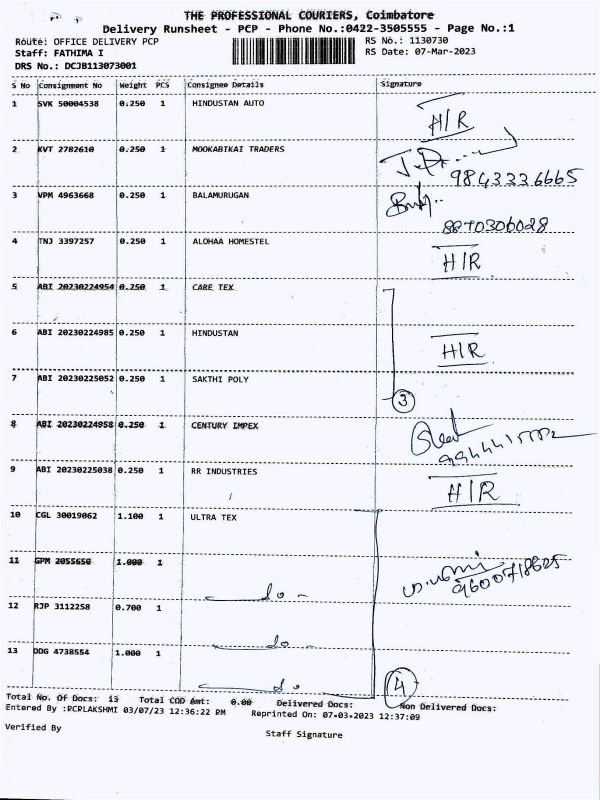 THE PROFESSIONAL COURIERS, Coimbatore
Delivery Runsheet - PCP - Phone No.:0422-3505555 - Page No.:1
Route: OFFICE DELIVERY PCP RS No.: 1130730
Staff: FATHIMA I RS Date: 07-Mar-2023
DRS No.: DCJB113073001
S No Consignment No Weight PCS Consignee Details Signature
1 SVK 50004538 0.250 1 HINDUSTAN AUTO H/R
2 KVT 2782610 0.250 1 MOOKABIKAI TRADERS
9843336665
3 VPM 4963668 0.250 1 BALAMURUGAN
8870306028
4 TNJ 3397257 0.250 1 ALOHAA HOMESTEL H/R
5 ABI 20230224954 0.250 1 CARE TEX
6 ABI 20230224985 0.250 1 HINDUSTAN H/R
7 ABI 20230225052 0.250 1 SAKTHI POLY
3
8 ABI 20230224958 0.250 1 CENTURY IMPEX
9 ABI 20230225038 0.250 1 RR INDUSTRIES H/R
10 CGL 30019062 1.100 1 ULTRA TEX
11 GPM 2055650 1.000 1
9600718625
do
12 RJP 3112258 0.700 1
do
13 DDG 4738554 1.000 1
do 4
Total No. Of Docs: 13 Total COD Amt: 0.00 Delivered Docs: Non Delivered Docs:
Entered By :PCRLAKSHMI 03/07/23 12:36:22 PM Reprinted On: 07-03-2023 12:37:09
Verified By Staff Signature